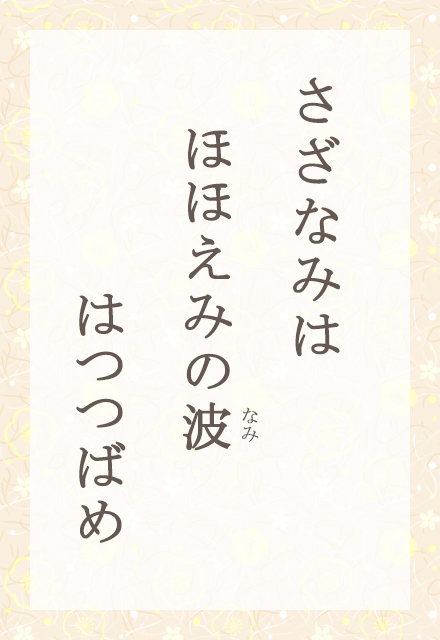 さざなみは
ほほえみの波
なみ
はつつばめ